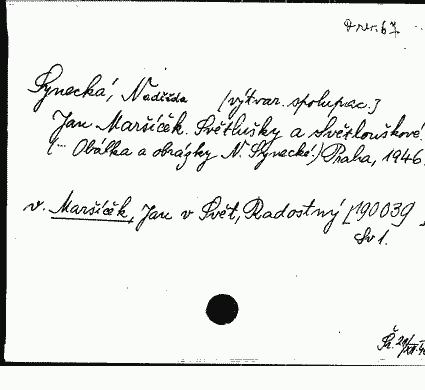 Synecká, Naděžda [výtvar. spoluprac.]
Jan Maršíček. Světlušky a Světlouškové
(... Obálka a obrázky N. Synecké.) Praha, 1946.
v. Maršíček, Jan v Svět, Radostný [190039]
Sv 1.